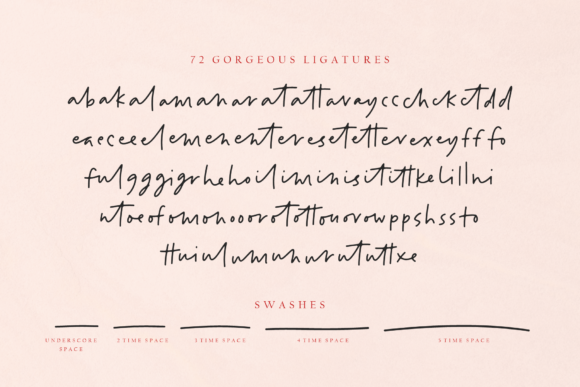 72 GORGEOUS LIGATURES
abakalamanaratattavayccchckctdd
eaeceeelemenenteresetettevexeyfffo
fulgggigrhehoiliminisitittkelillni
ntoeofomonooorotottouovowppshssto
ttuiulumunurututtxe
SWASHES
UNDERSCORE SPACE
2 TIME SPACE
3 TIME SPACE
4 TIME SPACE
5 TIME SPACE